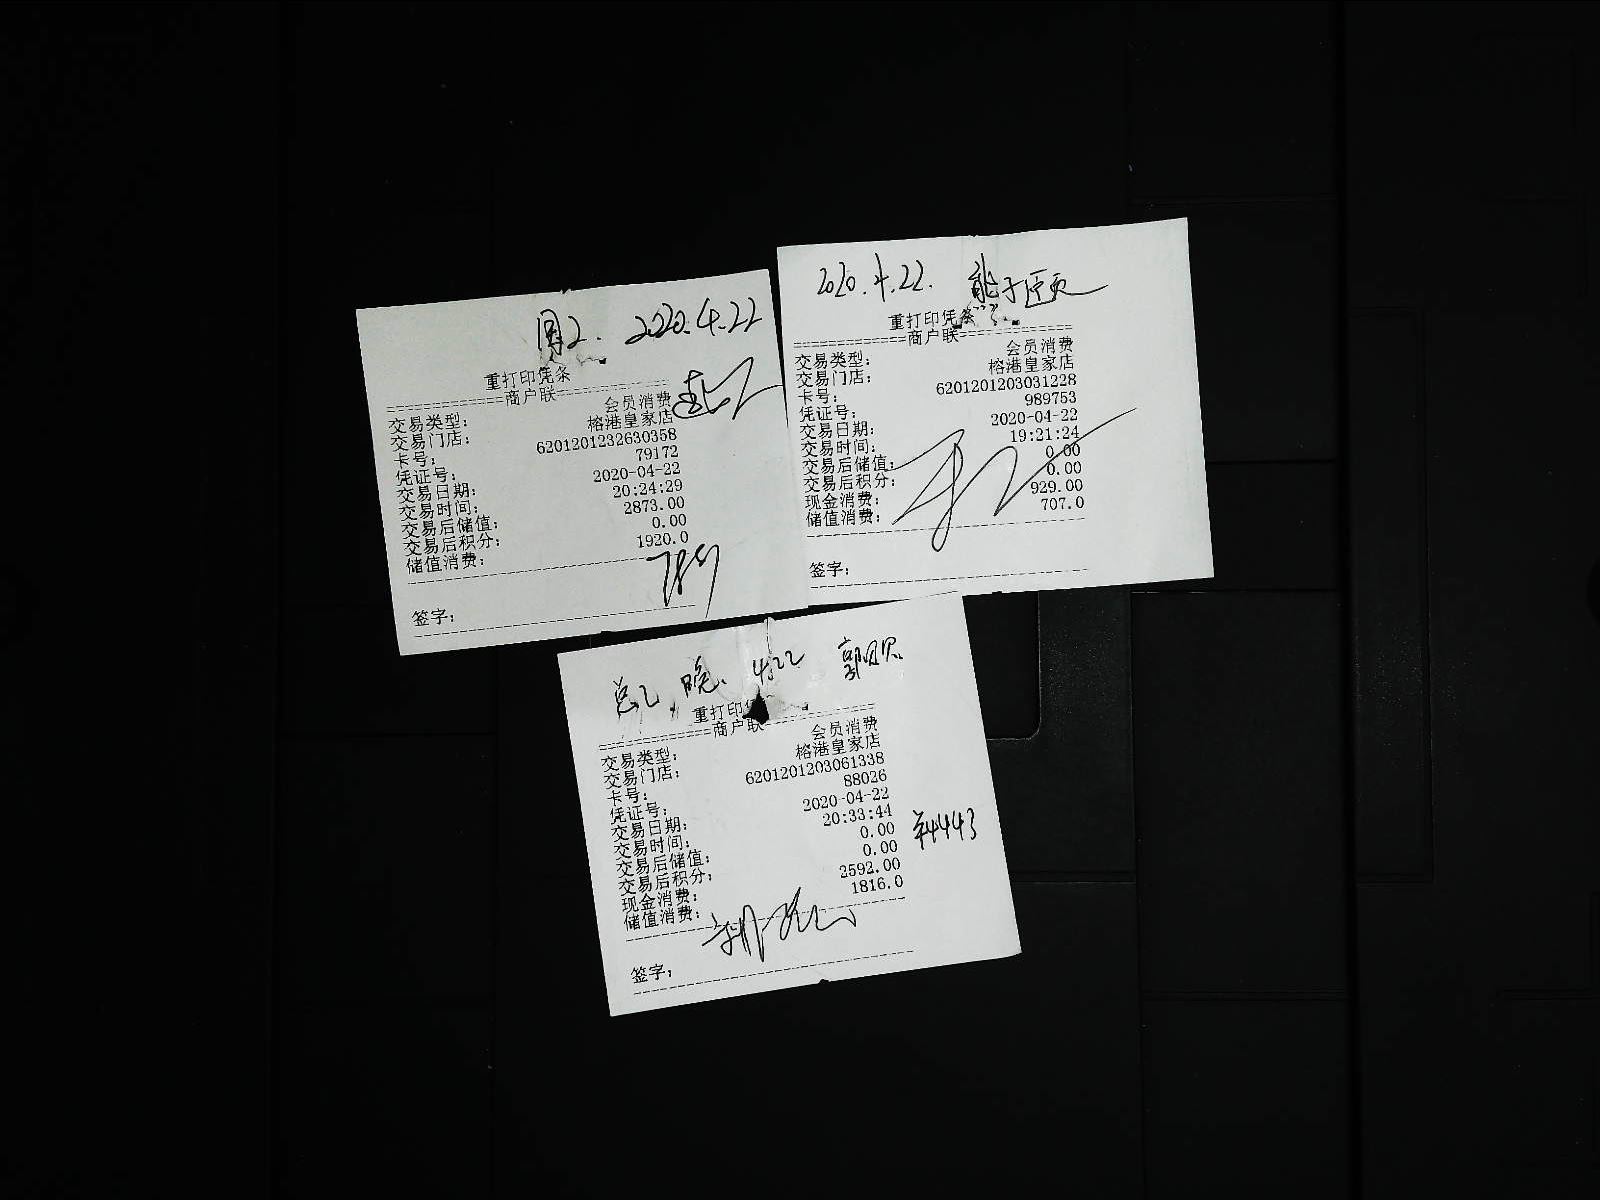 2020.4.22
重打印凭条
商户联
交易类型： 会员消费
交易门店： 榕港皇家店
卡号： 6201201232630358
凭证号： 79172
交易日期： 2020-04-22
交易时间： 20:24:29
交易后储值： 2873.00
交易后积分： 0.00
储值消费： 1920.0
签字：
2020.4.22.
重打印凭条
商户联
交易类型： 会员消费
交易门店： 榕港皇家店
卡号： 6201201203031228
凭证号： 989753
交易日期： 2020-04-22
交易时间： 19:21:24
交易后储值： 0.00
交易后积分： 0.00
现金消费： 929.00
储值消费： 707.0
签字：
总2 晚. 4.22
重打印
商户联
交易类型： 会员消费
交易门店： 榕港皇家店
卡号： 6201201203061338
凭证号： 88026
交易日期： 2020-04-22
交易时间： 20:33:44
交易后储值： 0.00
交易后积分： 0.00
现金消费： 2592.00
储值消费： 1816.0
¥4443
签字：